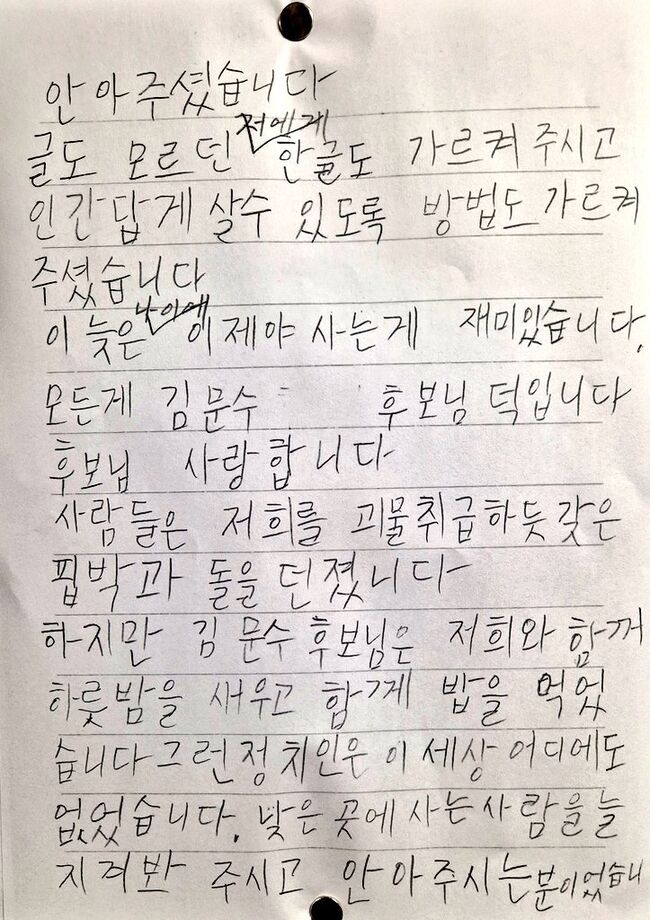 안아주셨습니다
글도 모르던 저에게 한글도 가르켜주시고
인간답게 살수 있도록 방법도 가르켜
주셨습니다
이 늦은 나이에 이제야 사는게 재미있습니다.
모든게 김문수 후보님 덕입니다
후보님 사랑합니다
사람들은 저희를 괴물취급하듯 갖은
핍박과 돌을 던졌니다
하지만 김문수후보님은 저희와 함꺼
하룻밤을 새우고 함께 밥을 먹었
습니다 그런정치인은 이 세상 어디에도
없었습니다. 낮은 곳에 사는사람을 늘
지켜봐 주시고 안아주시는분이었습니